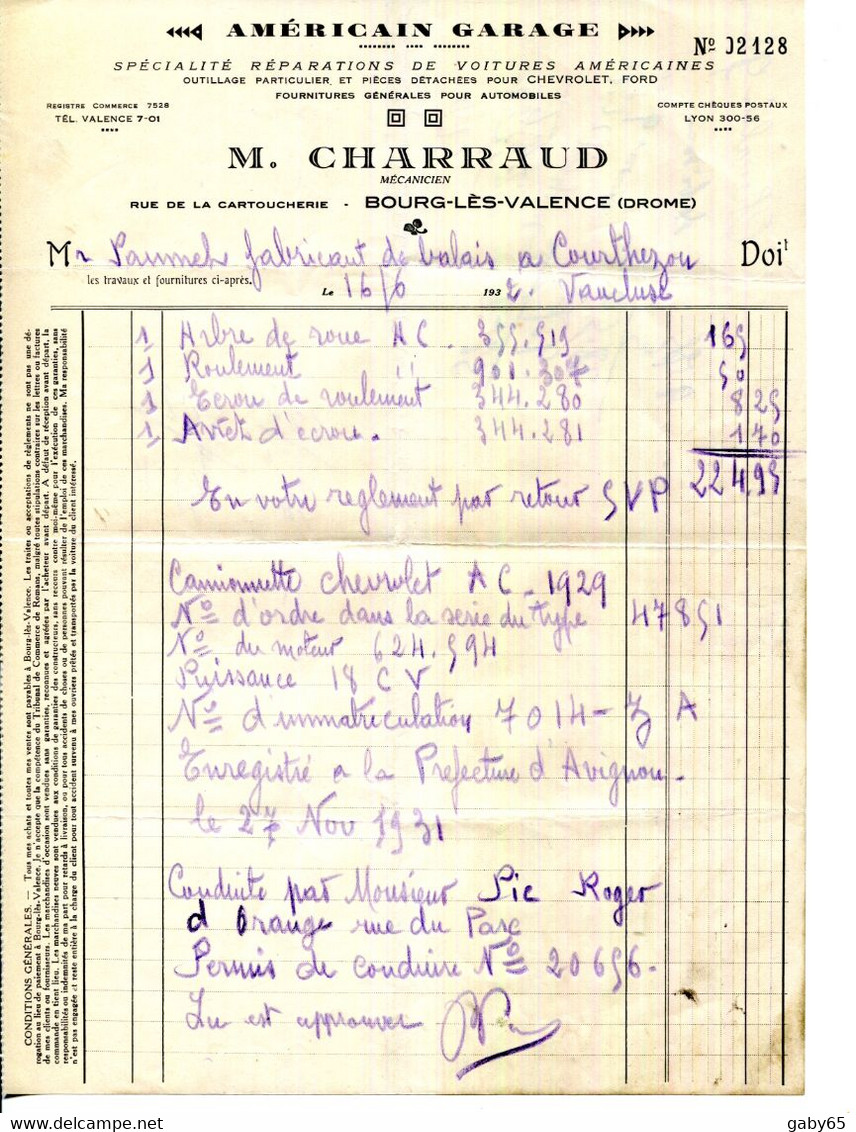 AMÉRICAIN GARAGE
Nº 02128
SPÉCIALITÉ RÉPARATIONS DE VOITURES AMÉRICAINES
OUTILLAGE PARTICULIER ET PIÈCES DÉTACHÉES POUR CHEVROLET, FORD
FOURNITURES GÉNÉRALES POUR AUTOMOBILES
REGISTRE COMMERCE 7528
TÉL. VALENCE 7-01
COMPTE CHÈQUES POSTAUX
LYON 300-56
M. CHARRAUD
MÉCANICIEN
RUE DE LA CARTOUCHERIE - BOURG-LÈS-VALENCE (DROME)
Mr fabricant de balais a Courthezon Doit
les travaux et fournitures ci-après.
Le 16/6 1932. Vaucluse
1 Arbre de roue AC. 355.519 165
1 Roulement " 901.307 50
1 Ecrou de roulement 344.280 8 25
1 Arret d'écrou. 344.281 1 70
En votre reglement par retour SVP 224.95
Camionnette chevrolet AC - 1929
Nº d'ordre dans la serie du type 47851
Nº du moteur 624.594
Puissance 18 CV
Nº d'immatriculation 7014-Z A
Enregistré a la Prefecture d'Avignon.
le 27 Nov 1931
Conduite par Monsieur Pic Roger
d Orange rue du Parc
Permis de conduire Nº 20656.
Lu est approuver
CONDITIONS GÉNÉRALES. — Tous mes achats et toutes mes ventes sont payables à Bourg-lès-Valence. Les traites ou acceptations de règlements ne sont pas une dé-
rogation au lieu de paiement à Bourg-lès-Valence. Je n'accepte que la compétence du Tribunal de Commerce de Romans, malgré toutes stipulations contraires sur les lettres ou factures
de mes clients ou fournisseurs. Les marchandises d'occasion sont vendues sans garanties, reconnues et agréées par l'acheteur avant départ. A défaut de réception avant départ, la
commande en tient lieu. Les marchandises neuves sont vendues aux conditions de garanties des constructeurs, sans recours contre moi-même pour l'exécution de ces garanties, sans
responsabilités ou indemnités de ma part pour retards à livraison, ou pour tous accidents de choses ou de personnes pouvant résulter de l'emploi de ces marchandises. Ma responsabilité
n'est pas engagée et reste entière à la charge du client pour tout accident survenu à mes ouvriers prêtés et transportés par la voiture du client intéressé.
www.delcampe.net
gaby65